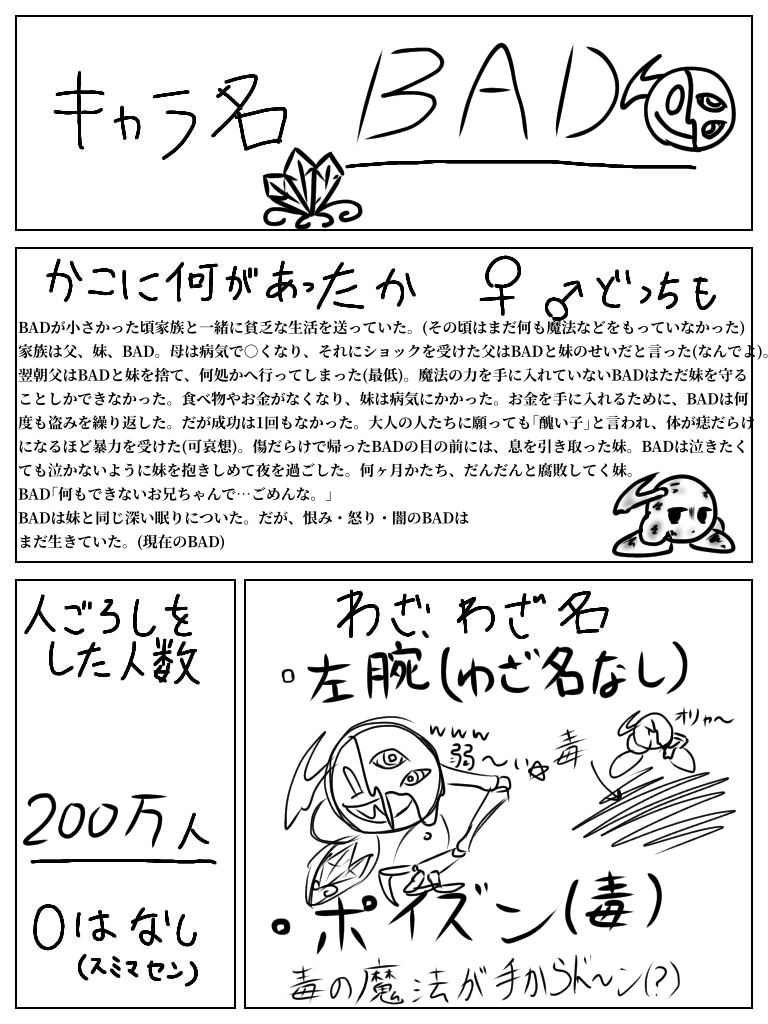 キャラ名 BAD
かこに何があったか ♀♂どっちも
BADが小さかった頃家族と一緒に貧乏な生活を送っていた。(その頃はまだ何も魔法などをもっていなかった)
家族は父、妹、BAD。母は病気で〇くなり、それにショックを受けた父はBADと妹のせいだと言った(なんでよ)。
翌朝父はBADと妹を捨て、何処かへ行ってしまった(最低)。魔法の力を手に入れていないBADはただ妹を守る
ことしかできなかった。食べ物やお金がなくなり、妹は病気にかかった。お金を手に入れるために、BADは何
度も盗みを繰り返した。だが成功は1回もなかった。大人の人たちに願っても「醜い子」と言われ、体が痣だらけ
になるほど暴力を受けた(可哀想)。傷だらけで帰ったBADの目の前には、息を引き取った妹。BADは泣きたく
ても泣かないように妹を抱きしめて夜を過ごした。何ヶ月かたち、だんだんと腐敗してく妹。
BAD「何もできないお兄ちゃんで…ごめんな。」
BADは妹と同じ深い眠りについた。だが、恨み・怒り・闇のBADは
まだ生きていた。(現在のBAD)
人ごろしを
した人数
200万人
0はなし
(スミマセン)
わざ、わざ名
。左腕(わざ名なし)
www
弱〜い☆
毒
オリャ〜
。ポイズン(毒)
毒の魔法が手からド〜ン(?)